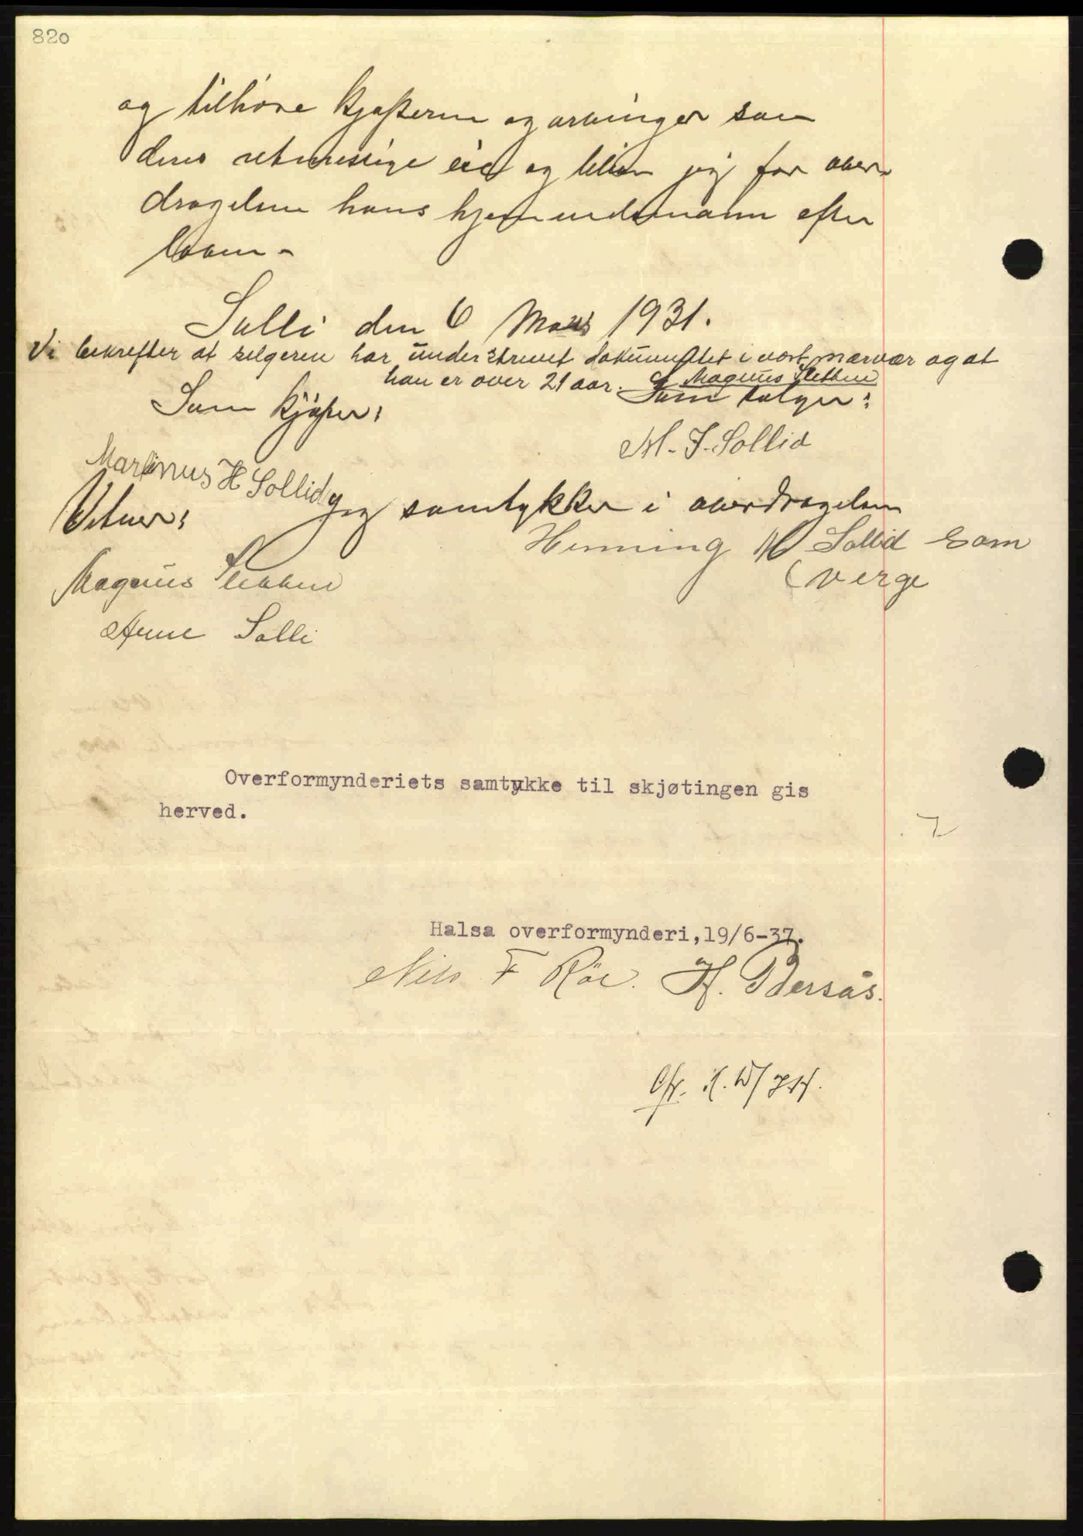 820
og tilhøre kjøperen og arvinger som
deres retmessige eie og blir jeg for over-
dragelsen hans hjemmelsmann efter
loven -
Solli den 6 Mars 1931.
Vi bekrefter at selgeren har underskrevet dokumentet i vort nærvær og at
han er over 21 aar. Magnus Slekken
Som kjøper: Som selger:
Marinus H Sollid M. J. Sollid
Vitner: Jeg samtykker i overdragelsen
Henning H Sollid som
verge
Magnus
Arne Solli
Overformynderiets samtykke til skjøtingen gis
herved.
Halsa overformynderi,19/6-37.
Nils F Röe. H.